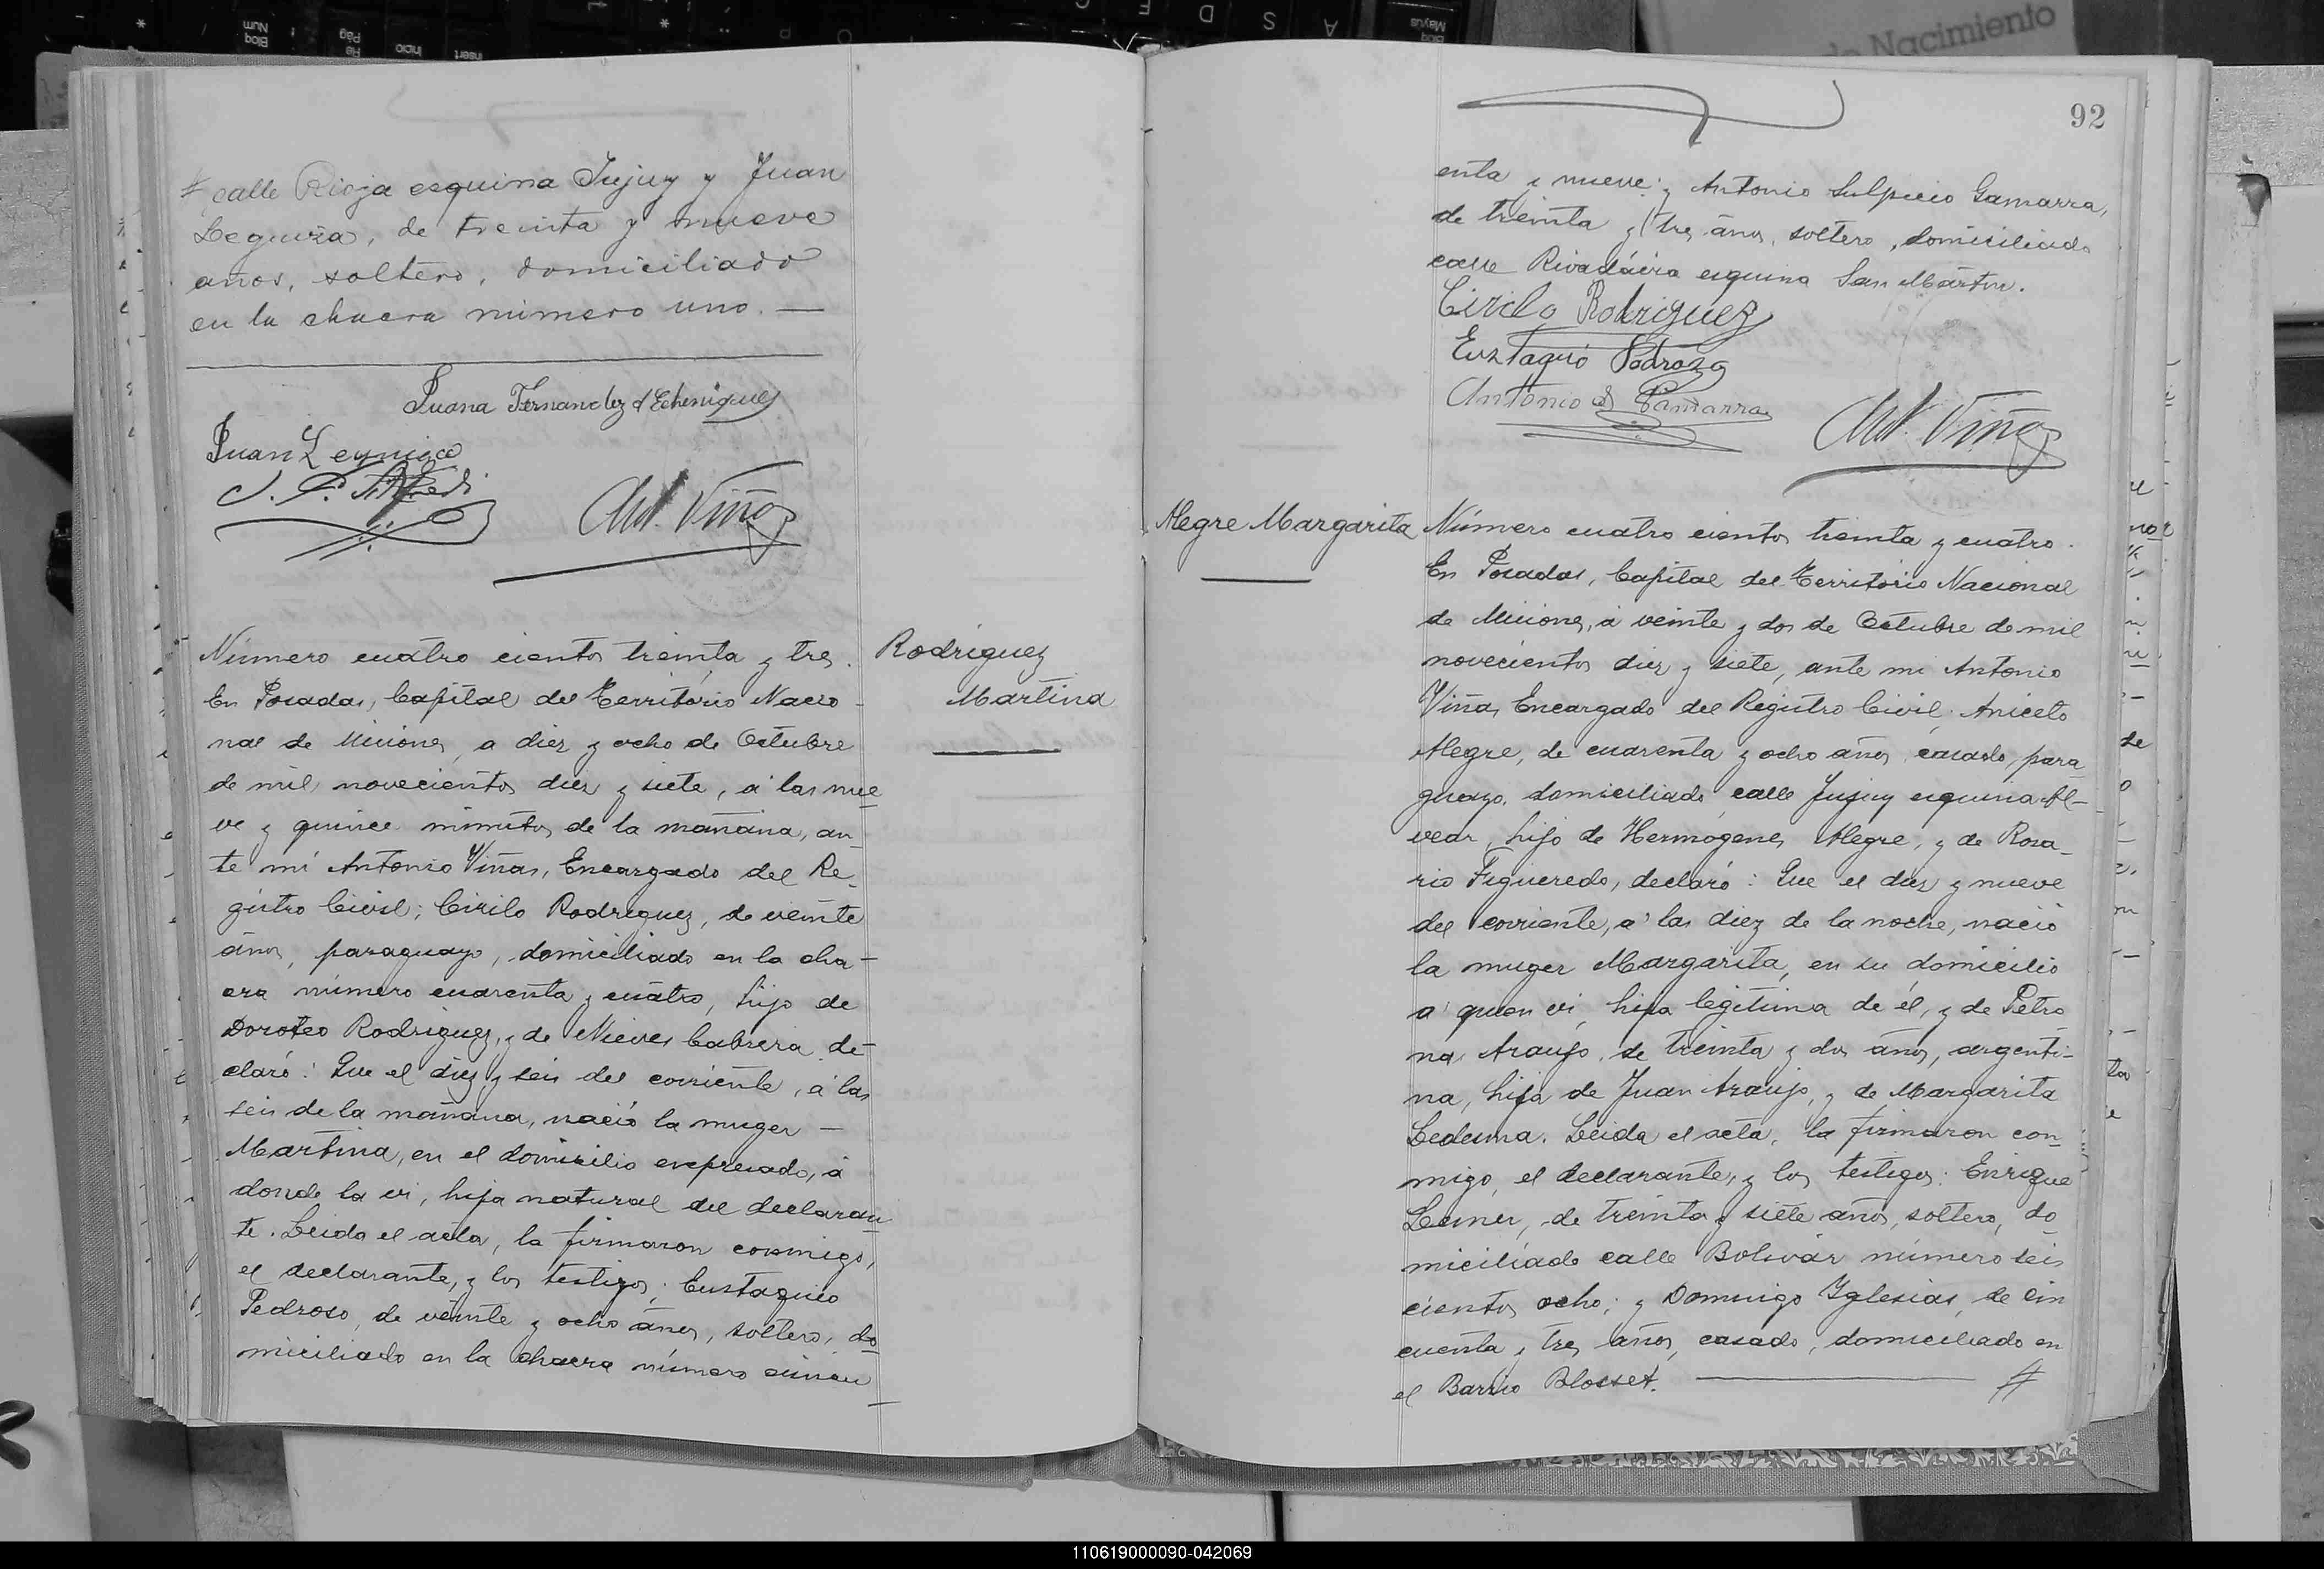 # calle Rioja esquina Jujuy y Juan
Leguiza, de treinta y nueve
años, soltero, domiciliado
en la chacra número uno. —
Juana Fernandez d Echenique
Juan Leguiza
Ant. Viñas
Número cuatro cientos treinta y tres.
En Posadas, Capital del Territorio Nacio-
nal de Misiones, a diez y ocho de Octubre
de mil novecientos diez y siete, á las nue
ve y quince minutos de la mañana, an-
te mí Antonio Viñas, Encargado del Re-
gistro Civil; Cirilo Rodriguez, de veinte
años, paraguayo, domiciliado en la cha-
cra número cuarenta y cuatro, hijo de
Doroteo Rodriguez, y de Nieves Cabrera, de-
claró: Que el diez y seis del corriente, á las
seis de la mañana, nació la muger —
Martina, en el domicilio expresado, á
donde la vi, hija natural del declaran-
te. Leida el acta, la firmaron conmigo,
el declarante, y los testigos; Eustaquio
Pedroso, de veinte y ocho años, soltero, do
miciliado en la chacra número cincu
Rodriguez
Martina
92
enta y nueve; y Antonio Sulpicio Gamarra,
de treinta y tres años, soltero, domiciliado
calle Rivadavia esquina San Martin.
Cirilo Rodriguez
Euztaquio Pedrozo
Antonio S Gamarra
Ant. Viñas
Alegre Margarita
Número cuatro cientos treinta y cuatro.
En Posadas, Capital del Territorio Nacional
de Misiones, á veinte y dos de Octubre de mil
novecientos diez y siete, ante mi Antonio
Viñas, Encargado del Registro Civil. Aniceto
Alegre, de cuarenta y ocho años, casado, para-
guayo, domiciliado calle Jujuy esquina Al-
vear, hijo de Hermógenes Alegre, y de Rosa-
rio Figueredo, declaró: Que el diez y nueve
del corriente, á las diez de la noche, nació
la muger Margarita, en su domicilio
a quien vi, hija legitima de él, y de Petro
na Araujo, de treinta y dos años, argenti-
na, hija de Juan Araujo, y de Margarita
Ledesma. Leida el acta, la firmaron con-
migo, el declarante, y los testigos: Enrique
de treinta y siete años, soltero, do
miciliado calle Bolivar número seis
cientos ocho; y Domingo Yglesias, de cin
cuenta y tres años, casado, domiciliado en
el Barrio Blosset. — #
de Nacimiento
110619000090-042069